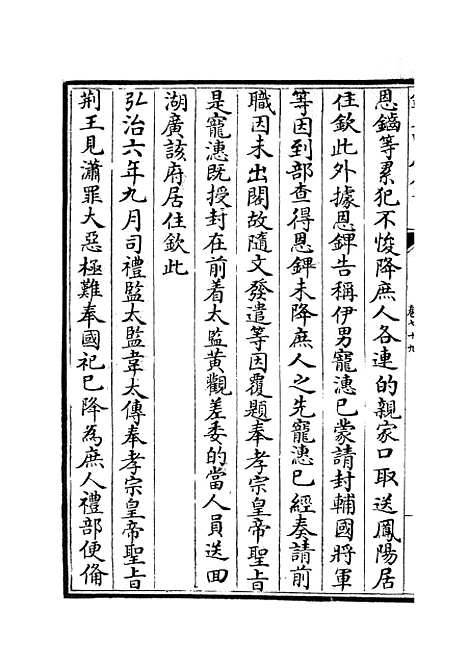 恩鏀等累犯不悛降庶人各連的親家口取送鳳陽居
住欽此外據恩鉮告稱伊男寵漗已蒙請封輔國將軍
等因到部查得恩鉮未降庶人之先寵漗已經奏請前
職因未出閣故隨文發遣等因覆題奉孝宗皇帝聖旨
是寵漗既授封在前着太監黃觀差委的當人員送回
湖廣該府居住欽此
弘治六年九月司禮監太監韋太傳奉孝宗皇帝聖旨
荆王見潚罪大惡極難奉國祀已降為庶人禮部便偹
卷七十九